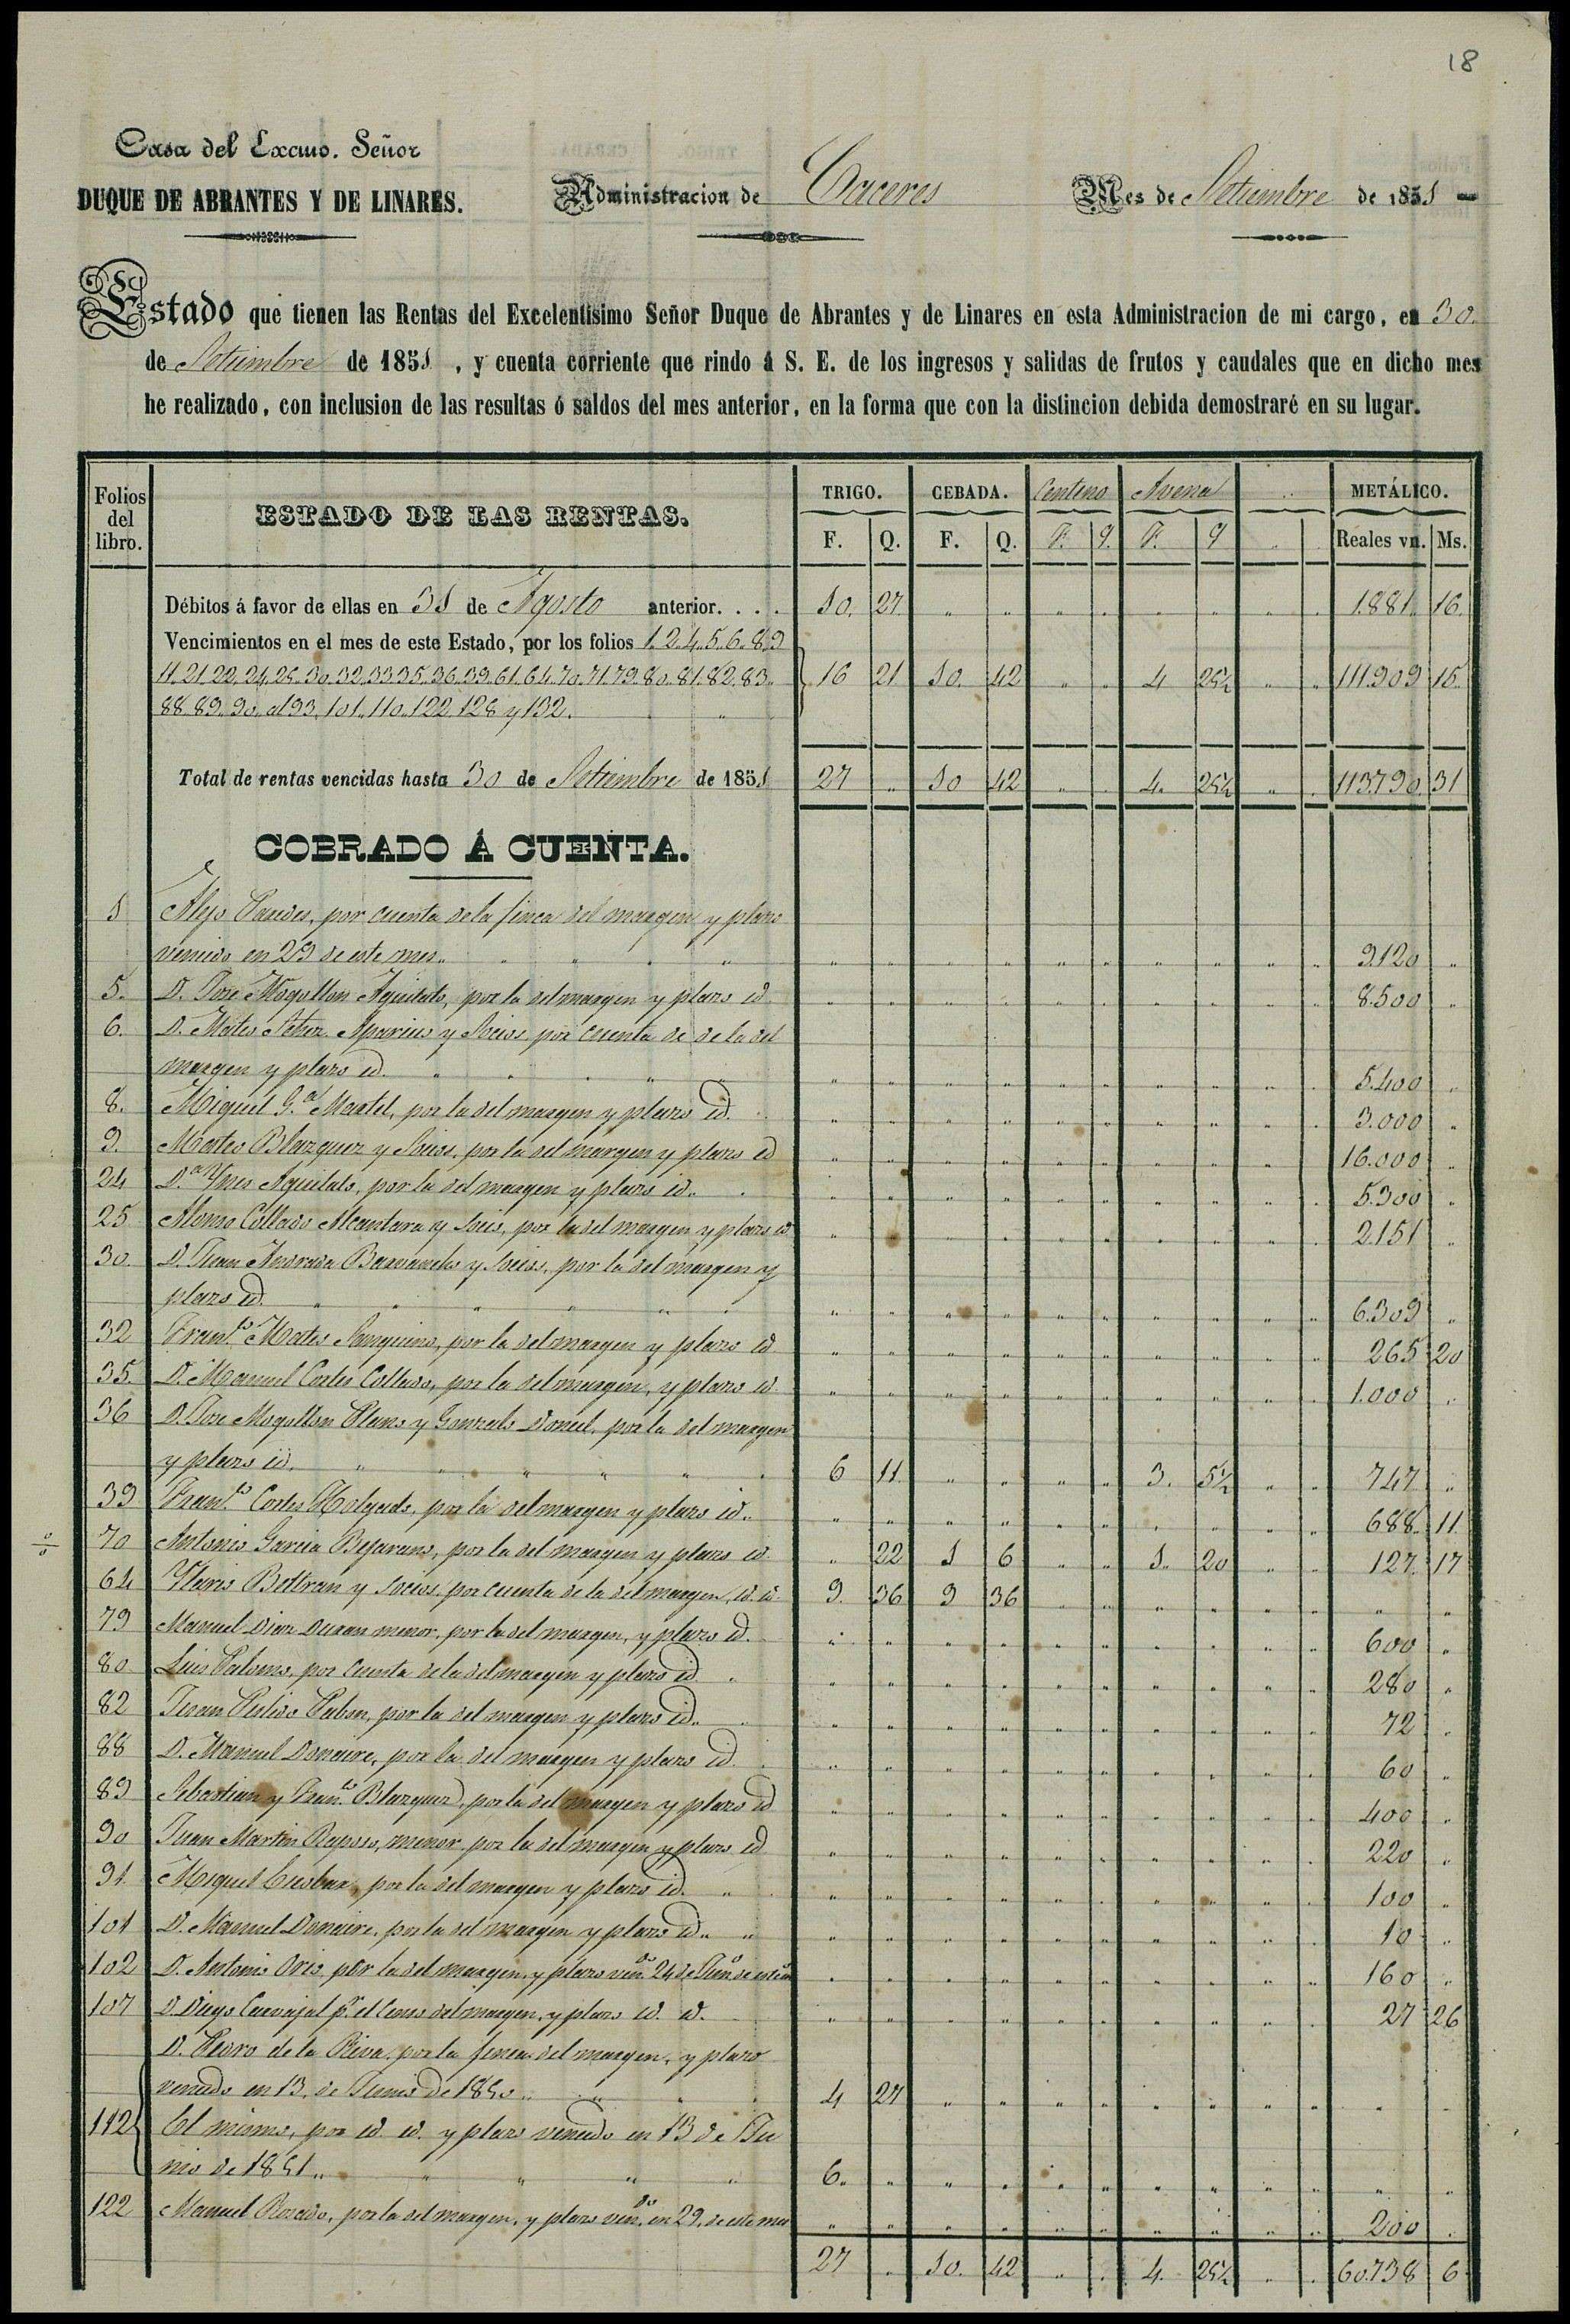 18
Casa del Excmo. Señor
DUQUE DE ABRANTES Y DE LINARES.
Administracion de Caceres
Mes de Setiembre de 1851
Estado que tienen las Rentas del Excelentisimo Señor Duque de Abrantes y de Linares en esta Administracion de mi cargo, en 30.
de Setiembre de 1851, y cuenta corriente que rindo á S. E. de los ingresos y salidas de frutos y caudales que en dicho mes
he realizado, con inclusion de las resultas ó saldos del mes anterior, en la forma que con la distincion debida demostraré en su lugar.
Folios del libro. ESTADO DE LAS RENTAS. TRIGO. CEBADA. Centeno Avena METÁLICO.
F. Q. F. Q. F. Q. F. Q Reales vn. Ms.
Débitos á favor de ellas en 31 de Agosto anterior. . . . 10. 27. 1.881. 16.
Vencimientos en el mes de este Estado, por los folios 1. 2. 4. 5. 6. 8. 9
11. 21. 22. 24. 25. 30. 32. 33. 35. 36. 39. 61. 64. 70. 71. 79. 80. 81. 82. 83. 16 21 10. 42 4 25½ 111.909 15.
88. 89. 90. al 93. 101. 110. 122. 128 y 132.
Total de rentas vencidas hasta 30 de Setiembre de 1851 27 10 42 4. 25½ 113.790. 31
COBRADO Á CUENTA.
1 Alejo Paredes, por cuenta de la finca del margen y plazo
vencido en 29 de este mes. 9.120
5. D. Jose Mogollon Aguilato, por la del margen y plazo id. 8.500
6. D. Mateo Aparicio y Socios por cuenta de de la del
margen y plazo id. 5.400
8. Miguel G.ª Martel, por la del margen y plazo id. 3.000
9. Mateo Blazquez y Socios, por la del margen y plazo id 16.000
24 D.ª Ynes Aguilato, por la del margen y plazo id. 5.300
25 Alonso Collado Alcantara y Socio, por la del margen y plazo id 2.151
30. D. Juan Andrada y Socios, por la del margen y
plazo id. 6.309
32 Fran.co Mateo Sanguino, por la del margen y plazo id 265 20
35. D. Manuel Cortes Collado, por la del margen, y plazo id. 1.000
36 D. Jose Mogollon Plano y Gonzalo Doncel, por la del margen
y plazo id. 6 11. 3. 5½ 747
39 Fran.co Cortes Holgado, por la del margen y plazo id. 688. 11.
70 Antonio Garcia Bejarano, por la del margen y plazo id. 22 1 6 1. 20 127. 17
64 Beltran y Socios por cuenta de la del margen, id. id. 9. 36 9 36
79 Manuel Diaz Duran menor, por la del margen, y plazo id. 600
80 Luis Palomo, por cuenta de la del margen y plazo id 280
82 Juan Pulido Pabon, por la del margen y plazo id. 72
88 D. Manuel Donaire, por la del margen y plazo id. 60
89 Sebastian y Fran.co Blazquez, por la del margen y plazo id 400
90 Juan Martin Raposo, menor, por la del margen y plazo id 220
91. Miguel, por la del margen y plazo id. 100
101 D. Manuel Donaire, por la del margen y plazo id. 10
102 D. Antonio por la del margen, y plazo ven.do 24 de 160
107 D. Diego Carvajal p.r el Censo del margen, y plazo id. id. 27 26
D. Pedro de la Riva, por la finca del margen, y plazo
vencido en 13, de Junio de 1850. 4 27
112 El mismo, por id. id. y plazo vencido en 13 de Ju
nio de 1851. 6.
122 Manuel Rosado, por la del margen, y plazo ven.do en 29, de este mes 200
27 10. 42 4. 25½ 60.738 6